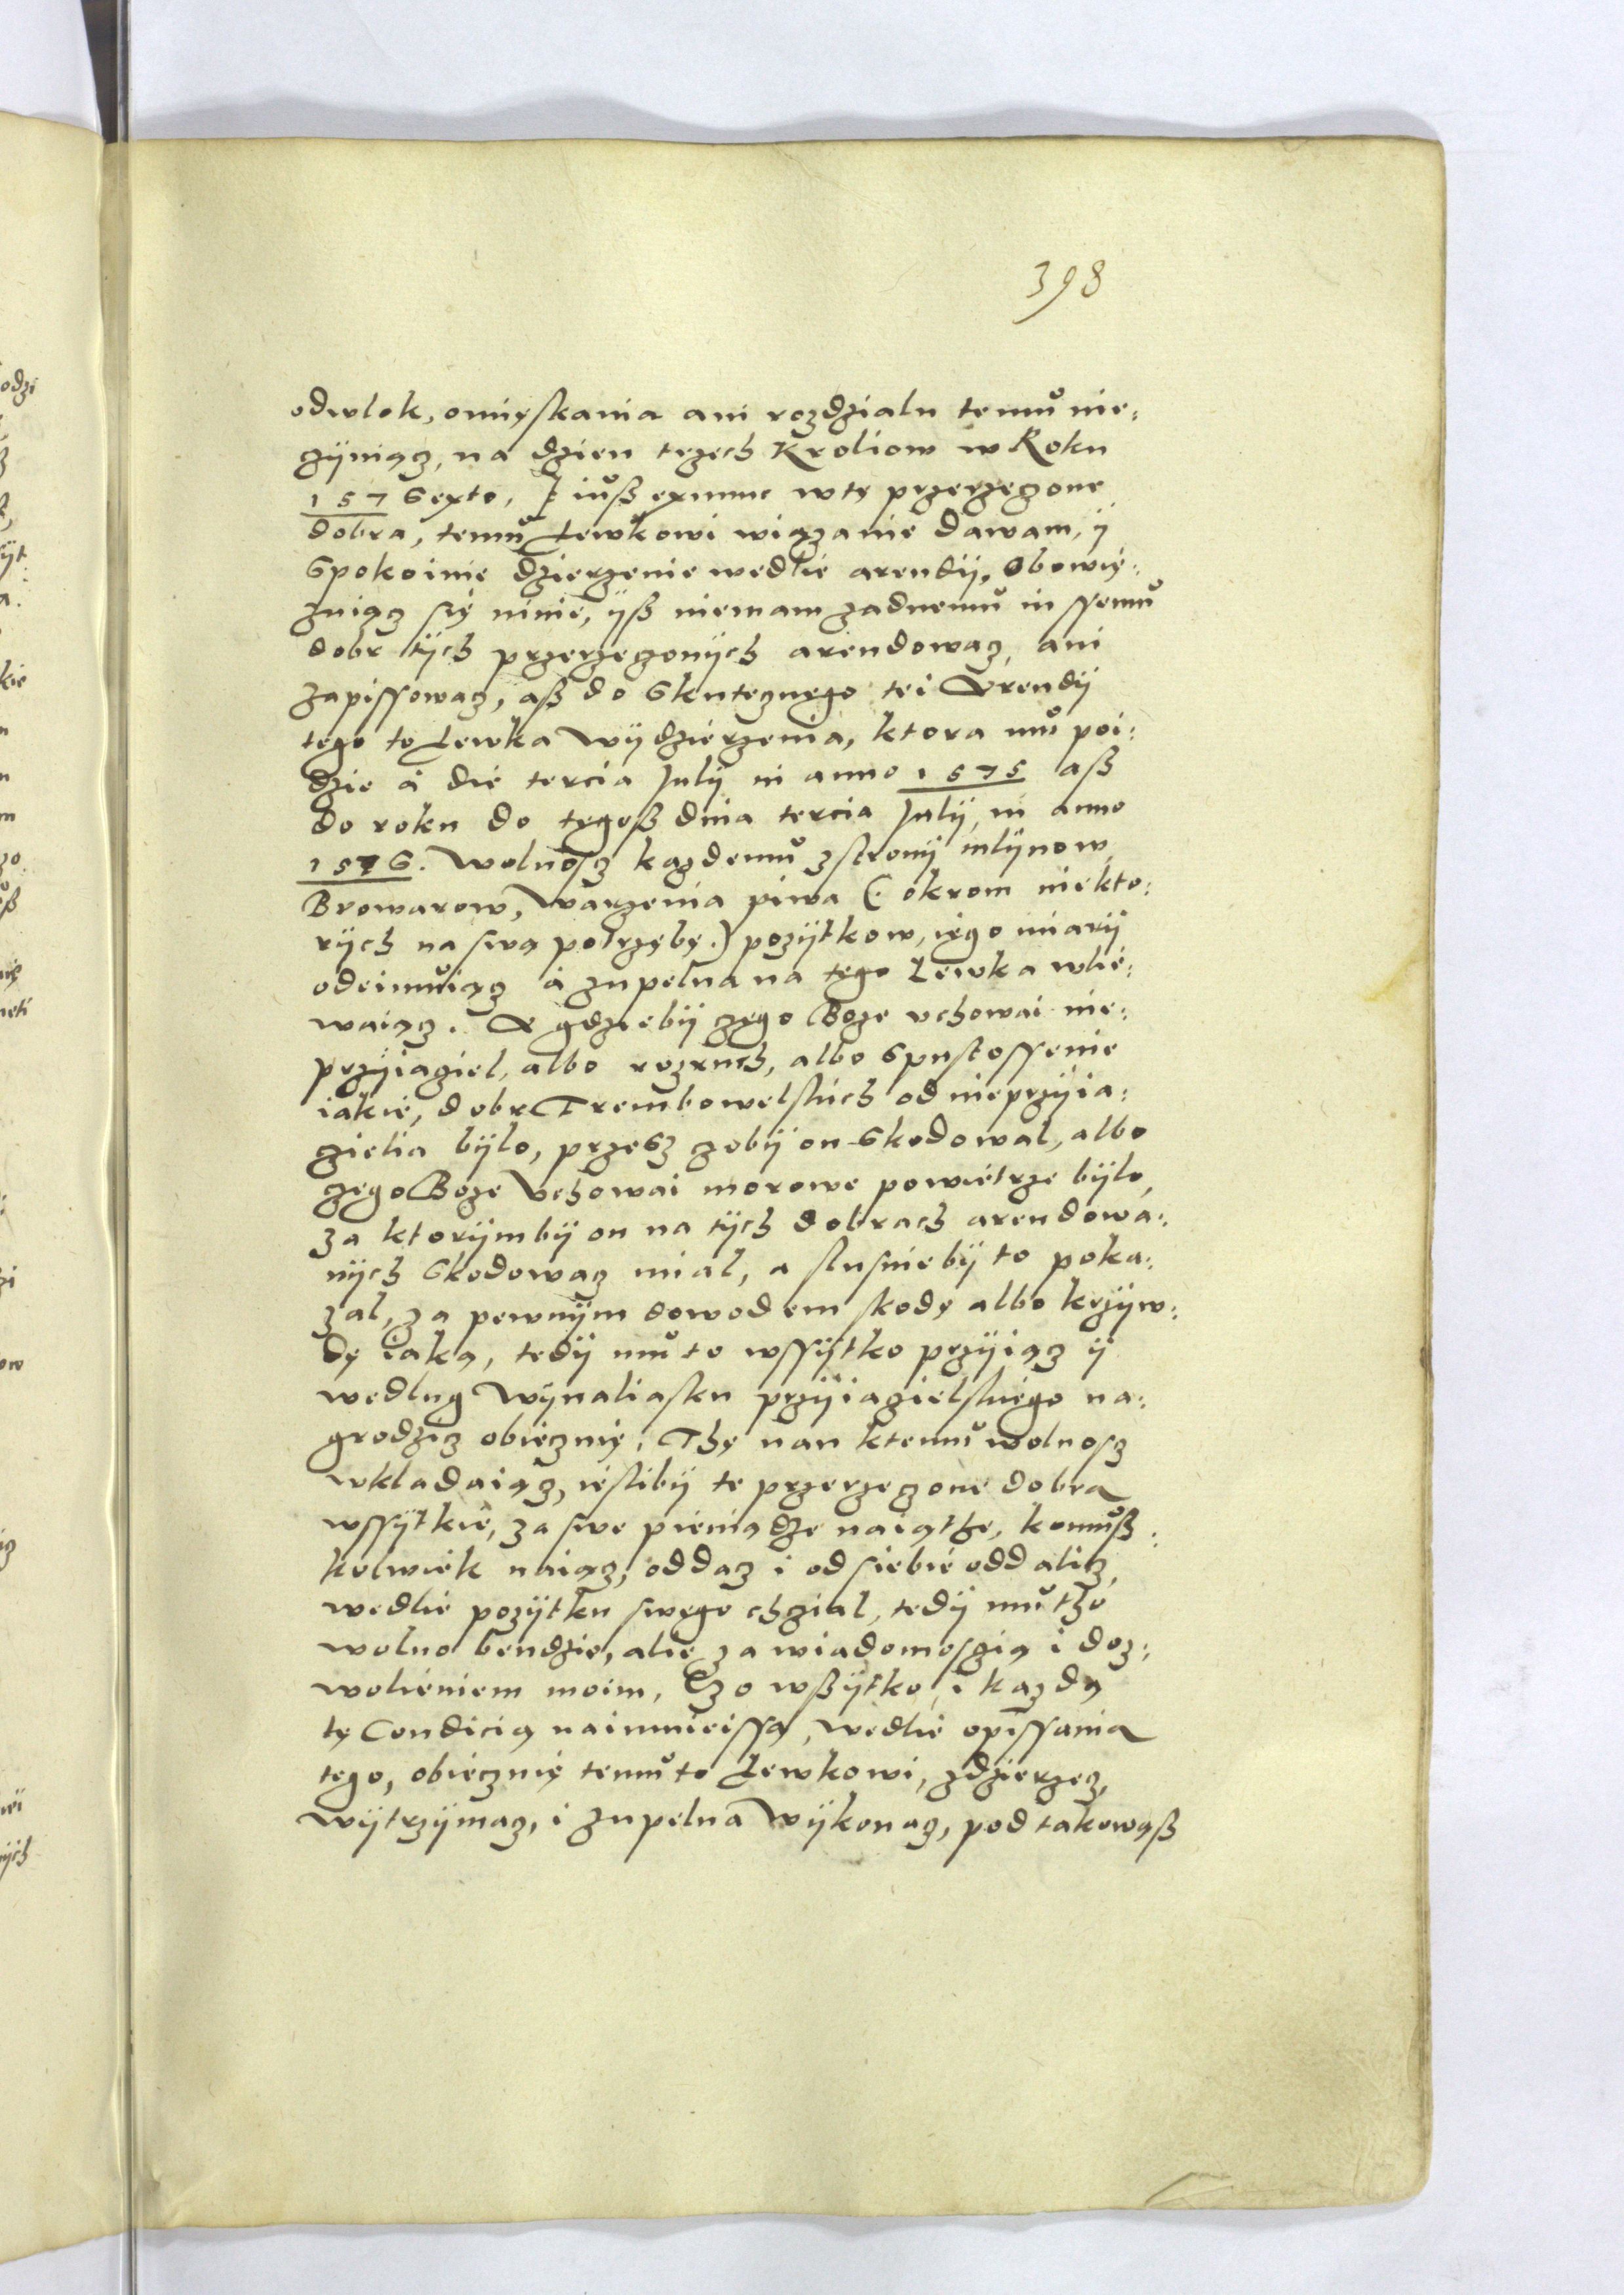 398
odwlok, omięskania ani rozdzialu temu nie:
czyniącz, na dzien trzech Kroliow w Roku
1576 exto, iuß exnunc w tę przerzeczone
dobra, temu Lewkowi wiązanie dawam, ÿ
Spokoinie dzierzenie wedlie arendÿ, Obowię:
zuiącz się ninie, ÿß niemam zadnemu inssemu
dobr tÿch przerzeczonÿch arendowacz, ani
zapissowacz, aß do Skutecznego tei Arendÿ
tego to Lewka wÿdzierzenia, ktora mu poi:
dzie à die tercia Julÿ in anno 1575 aß
do roku do tegoß dnia tercia Julÿ, in anno
1576. Wolnoscz kazdemu zstronÿ mlÿnow,
Browarow, Warzenia piwa (: okrom niekto:
rÿch na swą potrzębę.) pozÿtkow, iego miarÿ
odeimuiącz à zupelna na tego Lewka wlie:
waiącz. A gdziebÿ czego Boze uchowai nie:
przÿiaciel, albo rozruch, albo Spustossenie
iakie, dobr Trembowelskich od nieprzÿia:
cielia bÿlo, przesz czobÿ on Skodowal, albo
czego Boze Uchowai morowe powietrze bÿlo,
za ktorÿmbÿ on na tÿch dobrach arendowa:
nÿch Skodowacz mial, a slusniebÿ to poka:
zal, za pewnÿm dowodem skodę albo krzÿw:
dę iaką, tedÿ mu to wssÿtko przÿiącz ÿ
wedlug Wÿnaliasku przÿiacielskiego na:
grodzicz obiecznię. Thę nan ktemu wolnoscz
wkladaiącz, iestibÿ te przerzeczone dobra
wssÿtkie, za swe pieniądze naiąthe, komuß:
kolwiek naiącz, oddacz i od siebie oddalicz,
wedlie pozÿtku swego chczial, tedÿ mu tho
wolno bendzie, alie za wiadomosczią i doz:
wolieniem moim, Czo wßÿtko, i kazdą
tę Condicią naimnieissą, wedlie opissania
tego, obiecznię temu to Lewkowi, zdzierzecz,
wÿtrzÿmacz, i zupelna Wÿkonacz, pod takowąß